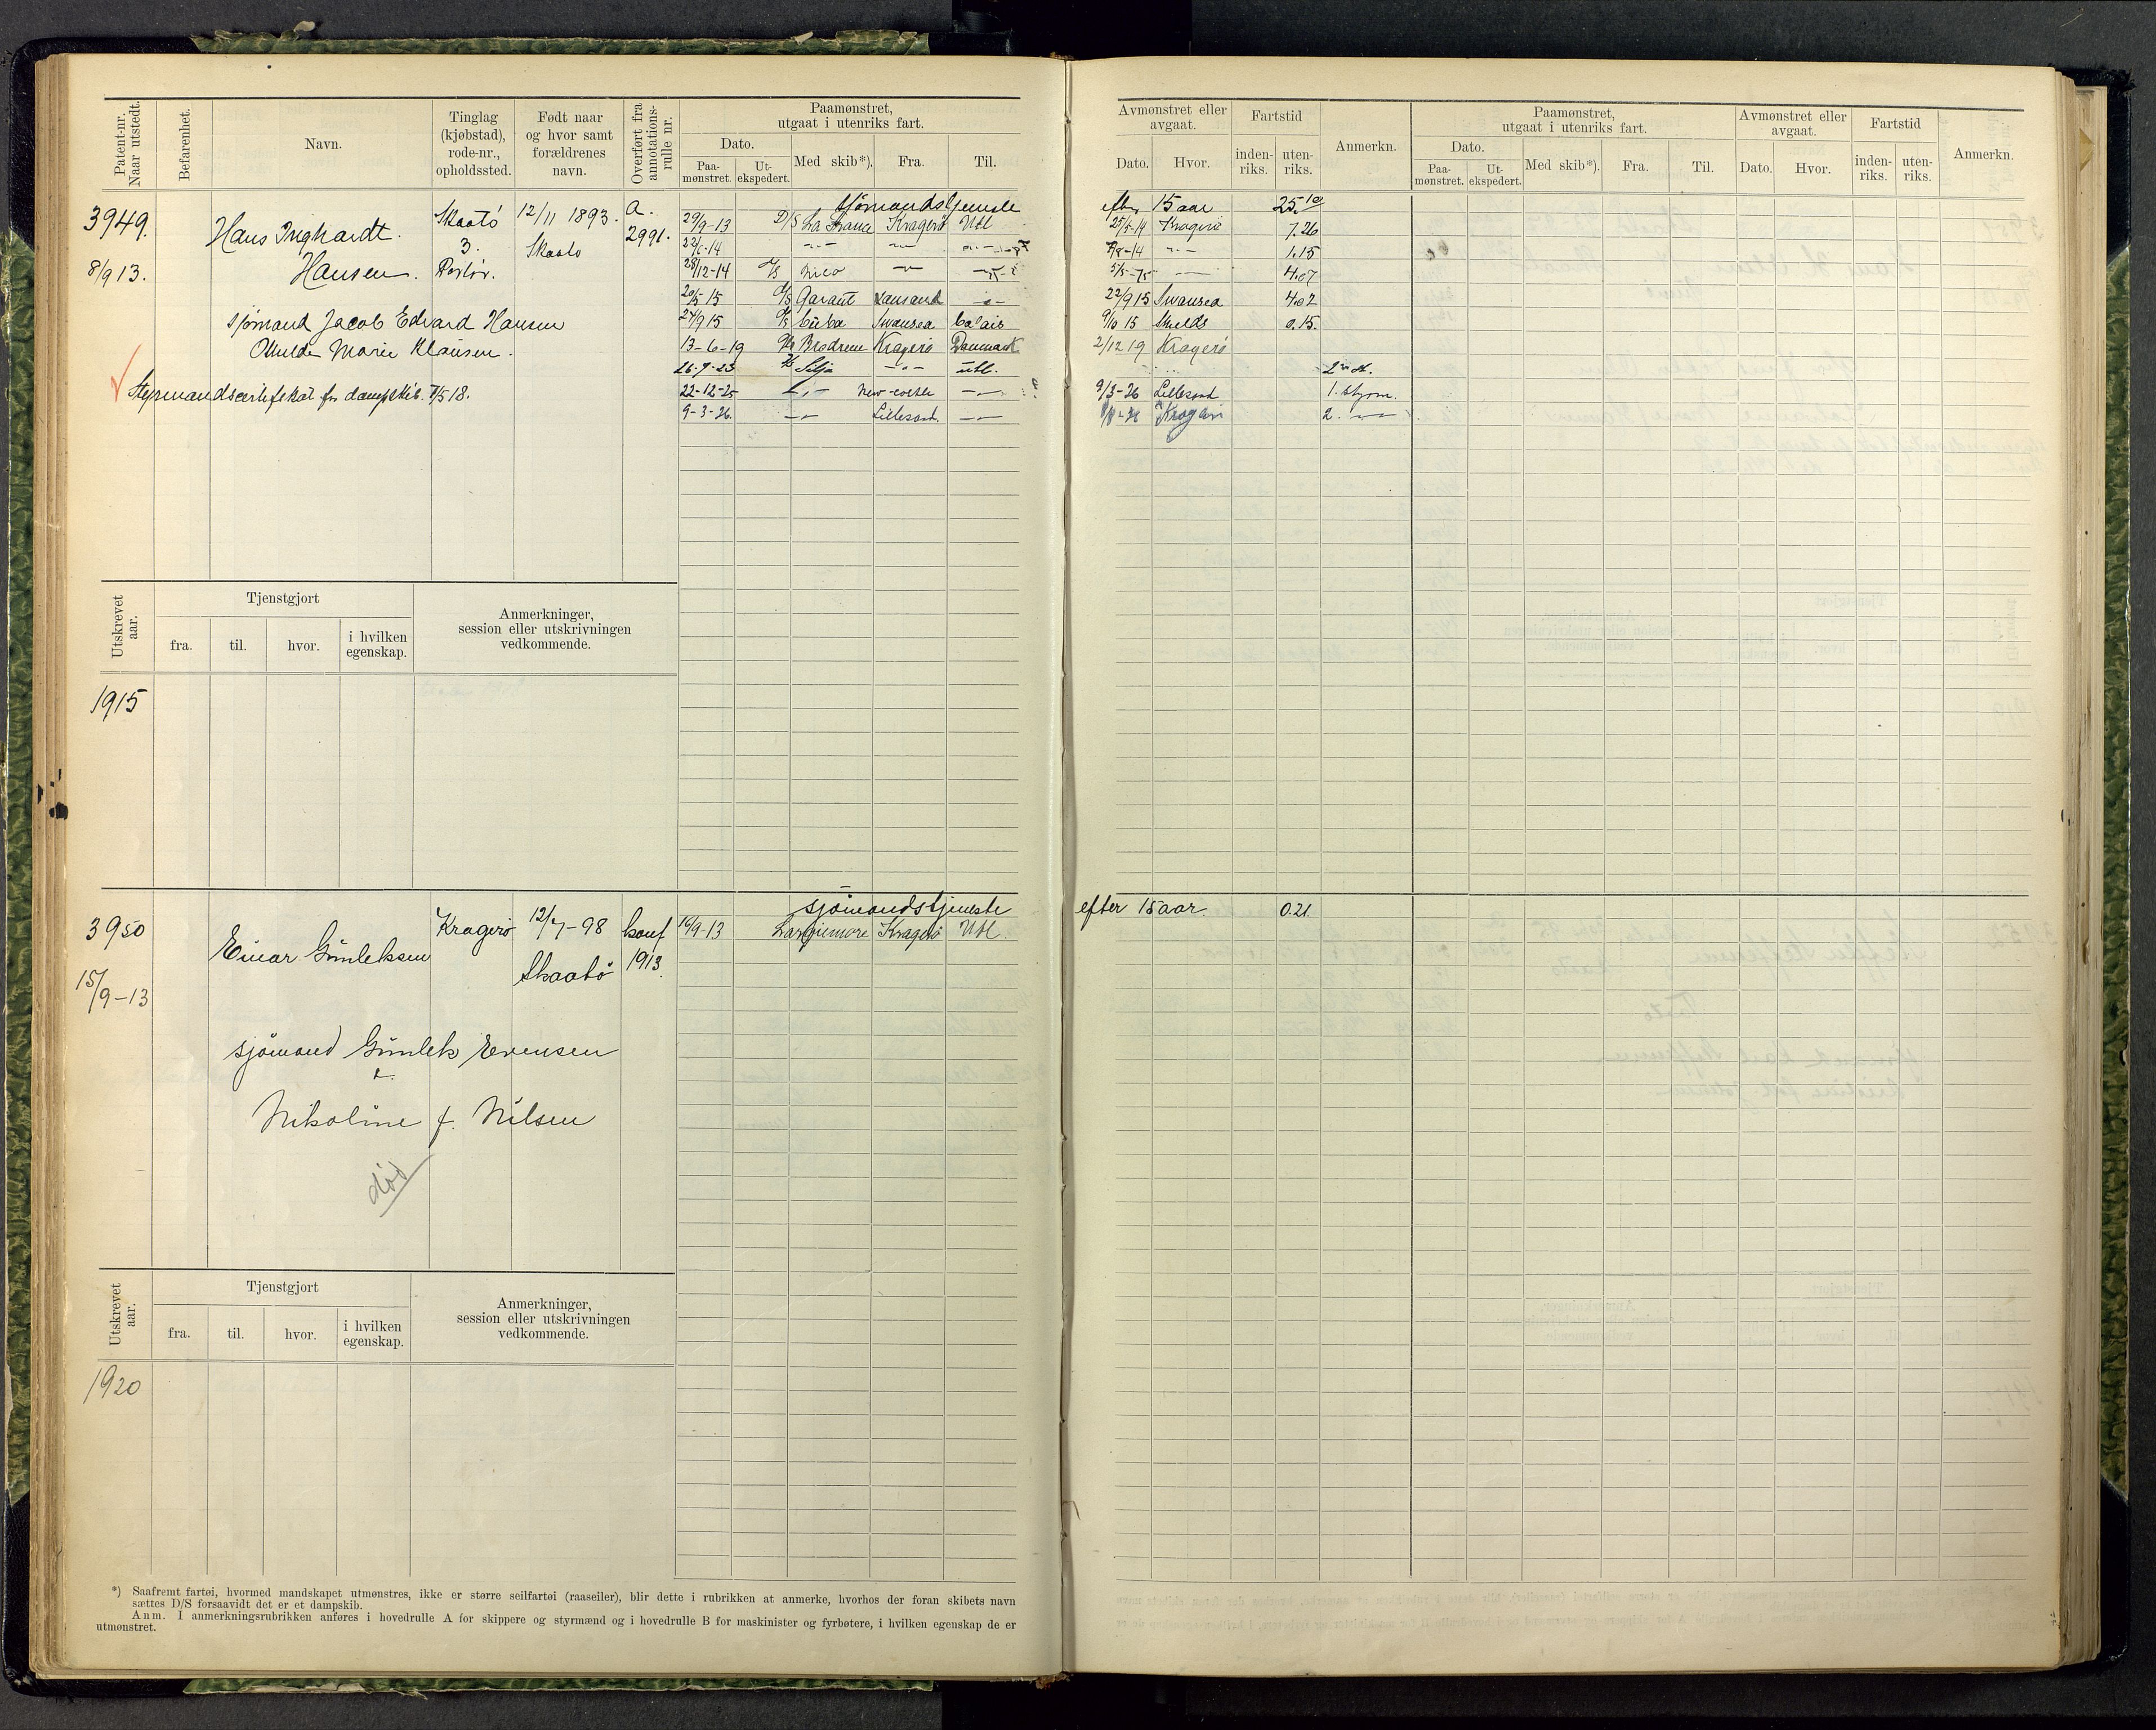 Patent-nr. Naar utstedt.
Befarenhet.
Navn.
Tinglag (kjøbstad), rode-nr., opholdssted.
Født naar og hvor samt forældrenes navn.
Overført fra annotations-rulle nr.
Paamønstret, utgaat i utenriks fart.
Dato.
Paa-mønstret.
Ut-ekspedert.
Med skib*).
Fra.
Til.
Avmønstret eller avgaat.
Dato.
Hvor.
Fartstid
inden-riks.
uten-riks.
Anmerkn.
Paamønstret, utgaat i utenriks fart.
Dato.
Paa-mønstret.
Ut-ekspedert.
Med skib*).
Fra.
Til.
Avmønstret eller avgaat.
Dato.
Hvor.
Fartstid
inden-riks.
uten-riks.
Anmerkn.
sjømandstjeneste efter 15 aar 25.10
3949. Hans Inghardt Skaatö 12/11 1893. a. 29/9-13 D/S La France Kragerö Utl 25/5-14 Kragerö 7.26
3. Skaatö 2991. -14 1.15
8/9 13. Hansen. 28/12-14 Nico 4.07
20/5 15 Garant 22/9 15 Swansea 4.02
sjømand Jacob Edvard Hansen 24/9 15 Cuba Swansea Calais 9/10 15 Shields 0.15.
Marie Klausen. 13-6-19 Brødrene Kragerö Danmark 2/12 19 Kragerö
26-9-23 Silja utl.
Styrmandscertifikat for dampskib 7/5 18. 22-12-25 9/3-26 Lillesand 1. styrm.
9-3-26. Lillesand. Kragerö 2.
Utskrevet aar.
Tjenstgjort
fra.
til.
hvor.
i hvilken egenskap.
Anmerkninger, session eller utskrivningen vedkommende.
1915
sjömandstjeneste efter 15 aar 0.21.
3950 Einar Gunleksen Kragerö 12/7-98 konf 16/9-13 Largiemore Kragerö Utl.
15/9-13 Skaatö 1913.
sjömand Gunlek Evensen
Nikoline f. Nilsen
död
Utskrevet aar.
Tjenstgjort
fra.
til.
hvor.
i hvilken egenskap.
Anmerkninger, session eller utskrivningen vedkommende.
1920
*) Saafremt fartøi, hvormed mandskapet utmønstres, ikke er større seilfartøi (raaseiler), blir dette i rubrikken at anmerke, hvorhos der foran skibets navn
sættes D/S forsaavidt det er et dampskib.
Anm. I anmerkningsrubrikken anføres i hovedrulle A for skippere og styrmænd og i hovedrulle B for maskinister og fyrbøtere, i hvilken egenskap de er
utmønstret.